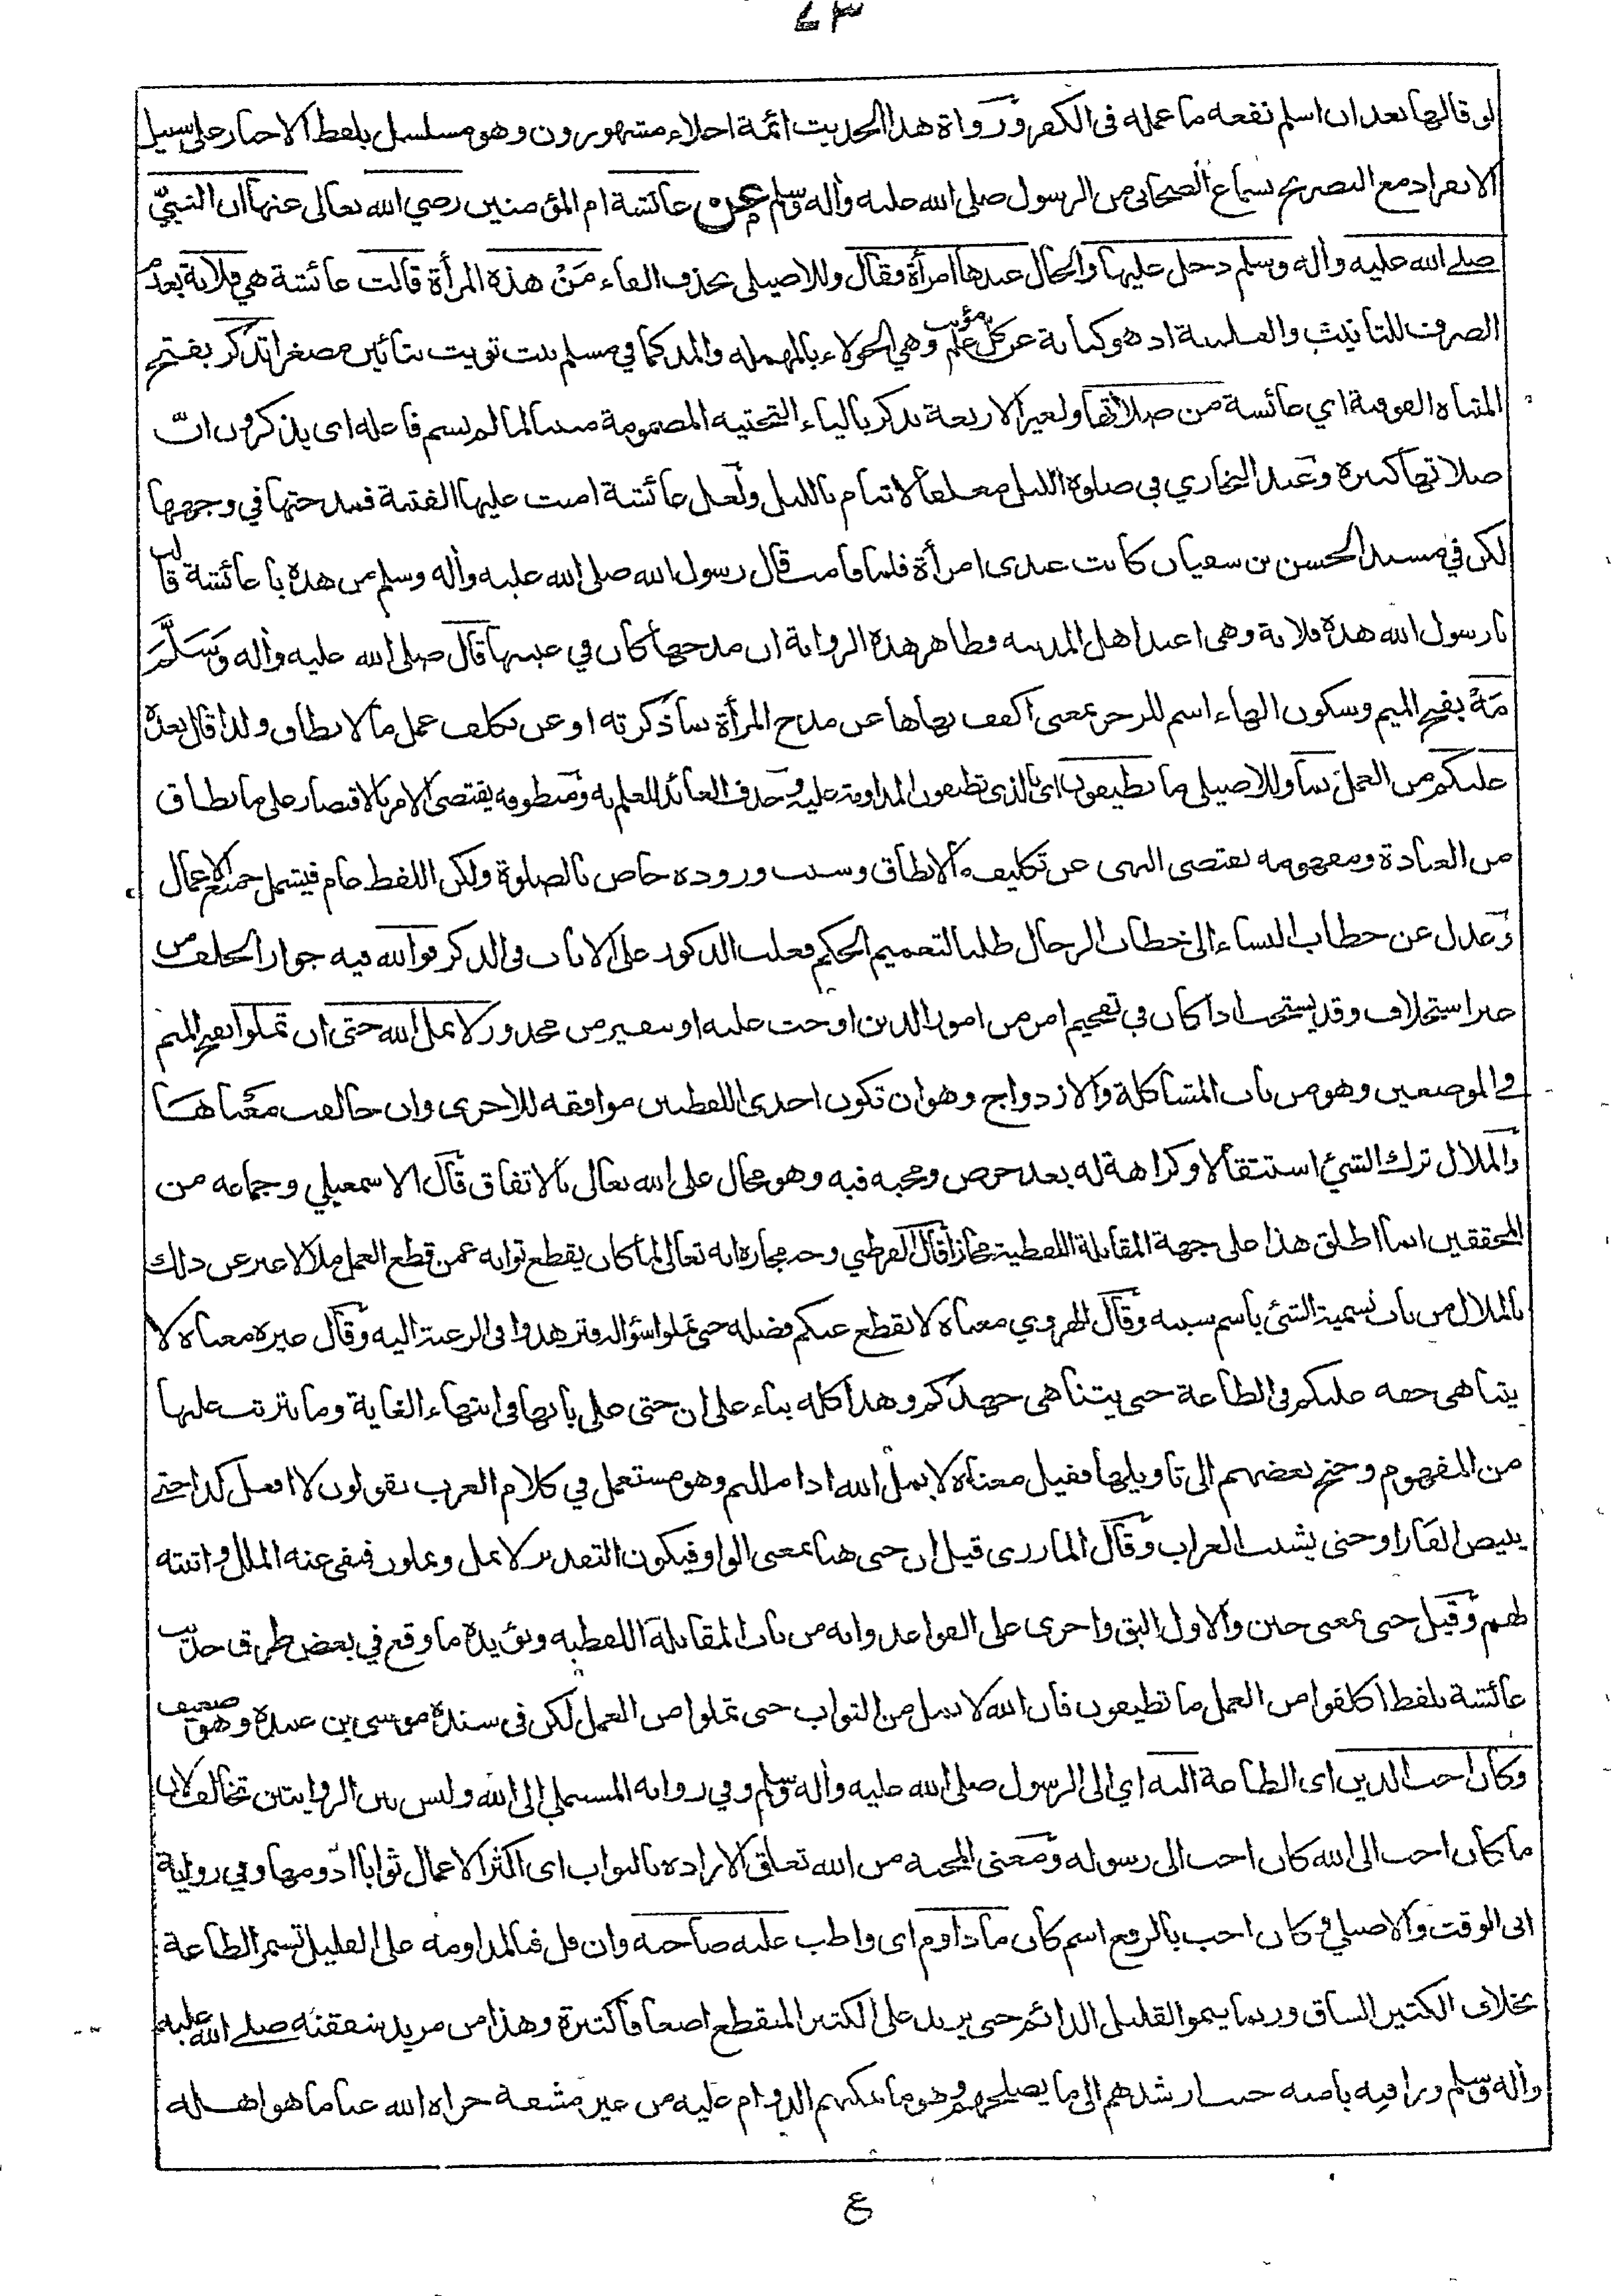 ٤٣
لو قالها بعد ان اسلم نفعه ما عمله في الكفر ورواة هذا الحديث ائمة اجلاء مشهورون وهو مسلسل بلفظ الاخبار على سبيل
الانفراد مع التصريح بسماع الصحابي من الرسول صلى الله عليه وأله وسلم عن عائشة ام المؤمنين رضي الله تعالى عنها ان النبيّ
صلے الله عليه وأله وسلم دخل عليها والحال عندها امرأة فقال وللاصيلى بحذف الفاء مَنْ هذه المرأة قالت عائشة هي فلانة بعدم
الصرف للتانيث والعلمية اذ هو كناية عن كل علم مؤنث وهي الحولاء بالمهمله والمد كما في مسلم بنت تويت بتائين مصغرا تذكر بفتح
المثناه الفوقية اي عائشة من صلاتها ولغير الاربعة يذكر بالياء التحتيه المضمومة مبنيا لما لم يسم فاعله اى يذكرون انّ
صلاتها كثيرة وعند البخاري في صلوة الليل معلقا لا تنام بالليل ولعل عائشة امنت عليها الفتنة فمدحتها في وجهها
لكن في مسند الحسن بن سفيان كانت عندى امرأة فلما قامت قال رسول الله صلى الله عليه وأله وسلم من هذه يا عائشة قالت
يا رسول الله هذه فلانة وهى اعبد اهل المدينه وظاهر هذه الرواية ان مدحها كان في غيبتها قال صلى الله عليه وأله وَسَلَّمَ
مَهْ بفتح الميم وسكون الهاء اسم للزجر بمعنى اكفف نهاها عن مدح المرأة بما ذكرته او عن تكلف عمل ما لا يطاق ولذا قال بعده
عليكم من العمل بما وللاصيلى ما تطيقون اى بالذى تطيقون المداومة عليه وحذف العائد للعلم به ومنطوقه يقتضى الامر بالاقتصار على ما يطاق
من العبادة ومفهومه يقتضى النهى عن تكليف ما لا يطاق وسبب وروده خاص بالصلوة ولكن اللفظ عام فيشمل جميع الاعمال
وعدل عن خطاب النساء الى خطاب الرجال طلبا لتعميم الحكم فغلب الذكور على الاناث في الذكر فوالله فيه جواز الحلف من
غير استحلاف وقد يستحب اذا كان في تفخيم امر من امور الدين او حث عليه او تنفير من محذور لا يمل الله حتى ان تملوا بفتح الميم
في الموضعين وهو من باب المشاكلة والازدواج وهو ان تكون احدى اللفظين موافقه للاخرى وان خالفت معناها
والملال ترك الشئ استثقالا وكراهة له بعد حرص ومحبه فيه وهو محال على الله تعالى بالاتفاق قال الاسمعيلي وجماعه من
المحققين انما اطلق هذا على جهة المقابلة اللفظية مجازا قال القرطبي وجه مجازه انه تعالى لما كان يقطع ثوابه عمن قطع العمل ملالا عبر عن ذلك
بالملال من باب تسمية الشئ باسم سببه وقال الهروي معناه لا يقطع عنكم فضله حتى تملوا سؤاله فتزهدوا في الرغبة اليه وقال غيره معناه لا
يتناهى حقه عليكم في الطاعة حتى يتناهى جهدكم وهذا كله بناء على ان حتى على بابها في انتهاء الغاية وما يترتب عليها
من المفهوم وجنح بعضهم الى تاويلها فقيل معناه لا يمل الله اذا مللتم وهو مستعمل في كلام العرب يقولون لا افعل كذا حتى
يبيض القار او حتى يشيب الغراب وقال المازرى قيل ان حتى هنا بمعنى الواو فيكون التقدير لا يمل وتملون فنفى عنه الملل واثبته
لهم وقيل حتى بمعنى حين والاول اليق واجرى على القواعد وانه من باب المقابلة اللفظيه ويؤيده ما وقع في بعض طرق حديث
عائشة بلفظ اكلفوا من العمل ما تطيقون فان الله لا يمل من الثواب حتى تملوا من العمل لكن في سنده موسى بن عبيدة وهو ضعيف
وكان احب الدين اى الطاعة اليه اي الى الرسول صلى الله عليه وأله وسلم وفي رواية المستملي الى الله وليس بين الروايتين تخالف لان
ما كان احب الى الله كان احب الى رسوله ومعنى المحبة من الله تعلق الارادة بالثواب اى اكثر الاعمال ثوابا ادومها وفي رواية
ابى الوقت والاصيلي وكان احب بالرفع اسم كان ما داوم اى واظب عليه صاحبه وان قل فبالمداومة على القليل تستمر الطاعة
بخلاف الكثير الشاق وربما ينمو القليل الدائم حتى يزيد على الكثير المنقطع اضعافا كثيرة وهذا من مزيد شفقته صلے الله عليه
وأله وسلم ورافته بامته حيث ارشدهم الى ما يصلحهم وهو ما يمكنهم الدوام عليه من غير مشقة جزاه الله عنا ما هو اهله
ع